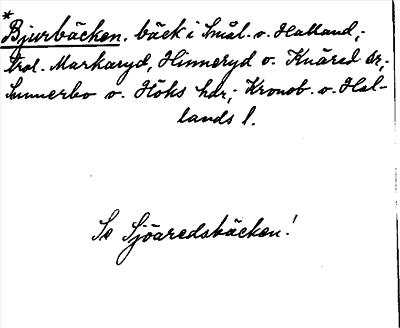 *
Bjurbäcken. bäck i Smål. o. Halland;
trol. Markaryd, Hinneryd o. Knäred sr;
Sunnerbo o. Höks hdr; Kronob. o. Hal-
lands l.
Se Sjöaredsbäcken!